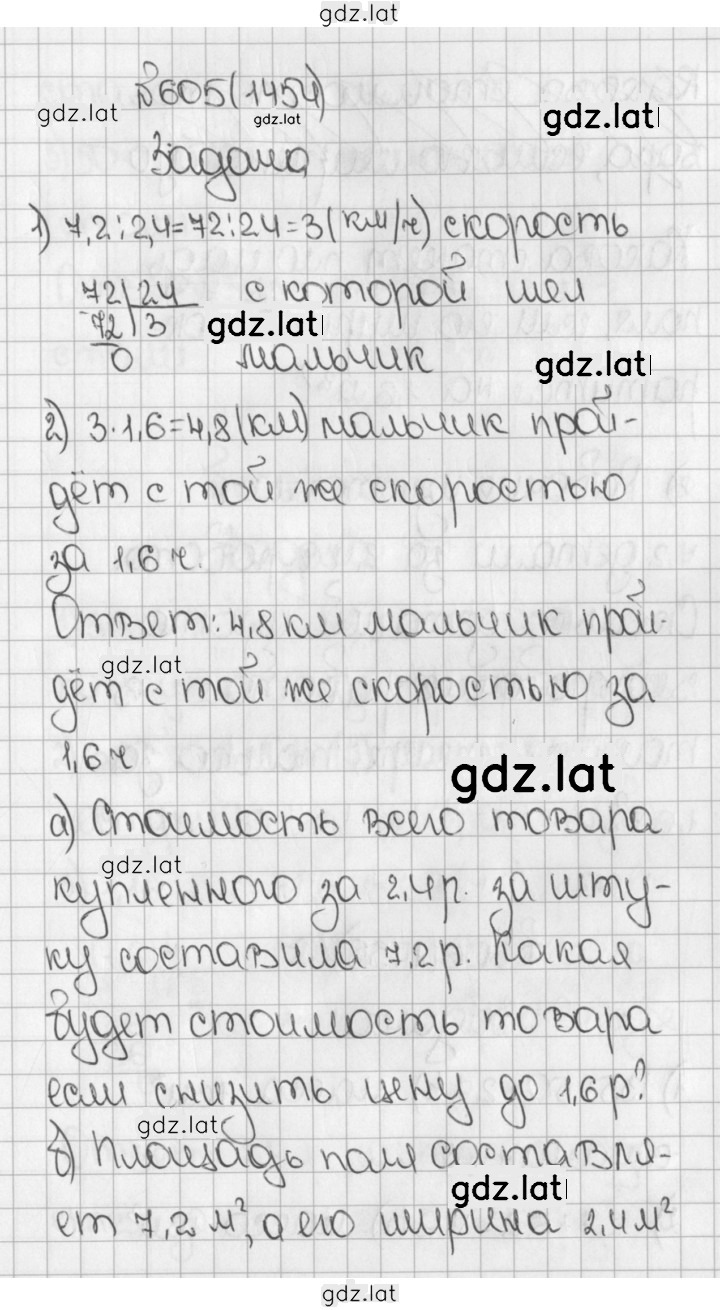 gdz.lat
№605(1454)
gdz.lat
gdz.lat
gdz.lat
Задача
1) 7,2:2,4=72:24=3(км/ч) скорость
72|24 с которой шел
-72|3
gdz.lat
0 мальчик
gdz.lat
2) 3·1,6=4,8(км) мальчик прой-
дёт с той же скоростью
за 1,6 ч.
Ответ: 4,8 км мальчик прой-
gdz.lat
дёт с той же скоростью за
1,6 ч
gdz.lat
а) Стоимость всего товара
gdz.lat
купленного за 2,4р. за шту-
ку составила 7,2р. Какая
будет стоимость товара
если снизить цену до 1,6р?
gdz.lat
б) Площадь поля составля-
gdz.lat
ет 7,2 м², а его ширина 2,4м²
gdz.lat